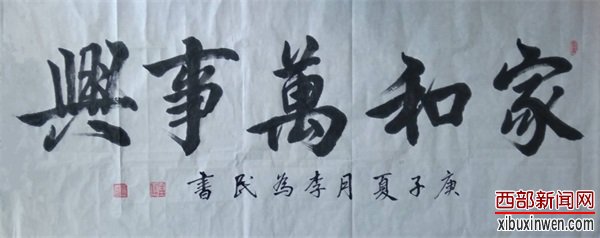 家和萬事興
庚子夏月李為民書
西部新闻网
xibuxinwen.com